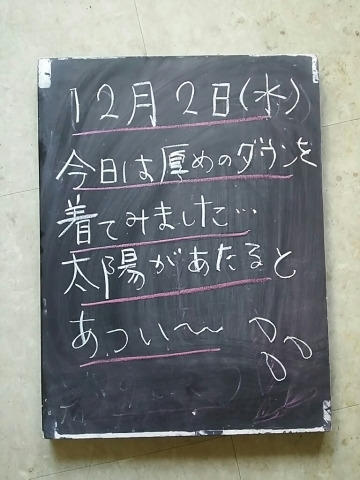 12月2日(水)
今日は厚めのダウンを
着てみました…
太陽があたると
あつい〜